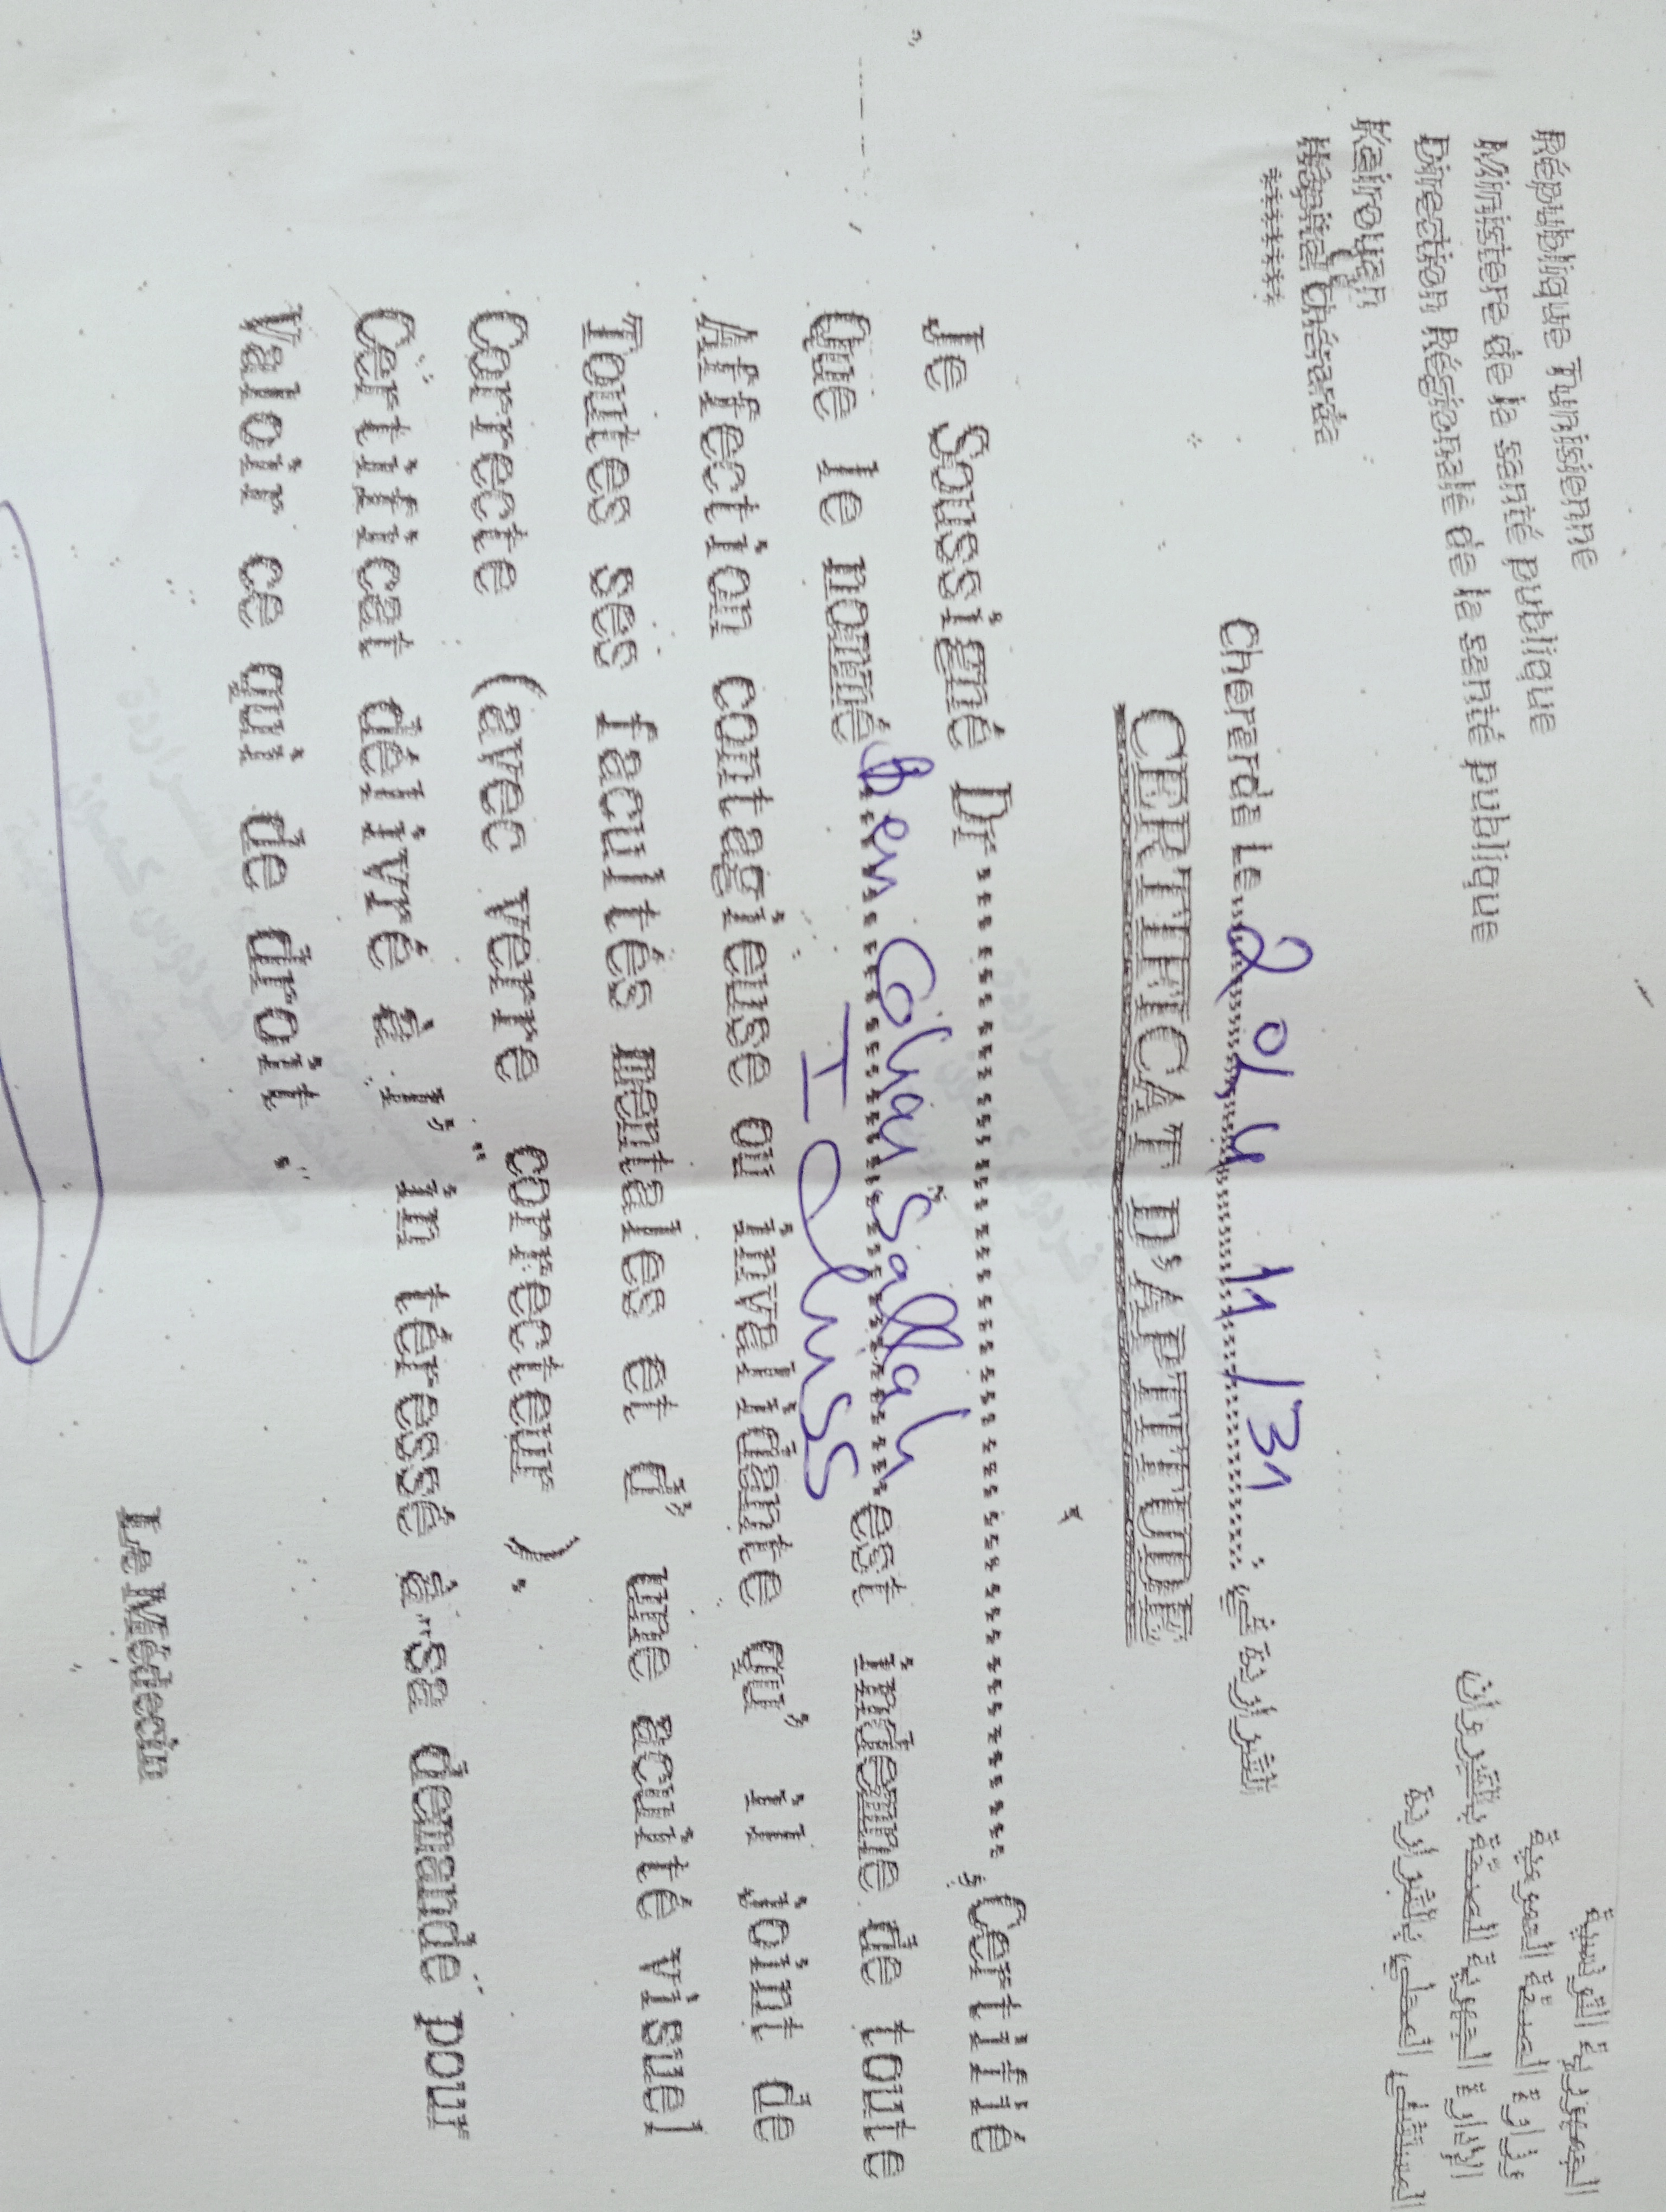 République Tunisienne
Ministère de la santé publique
Direction Régionale de la santé publique
Kairouan
Hôpital Cherarda
********
الجمهورية التونسية
وزارة الصحة العمومية
الإدارة الجهوية للصحة بالقيروان
المستشفى المحلي بالشراردة
Cherarda Le ............ : في الشراردة
CERTIFICAT D'APTITUDE
Je Soussigné Dr .................... , Certifié
Que le nommé ben Sallah est indemne de toute
Affection contagieuse ou invalidante qu' il joint de
Toutes ses facultés mentales et d' une acuité visuel
Correcte (avec verre correcteur ).
Certificat délivré à l' intéressé à sa demande pour
Valoir ce qui de droit .
Le Médecin